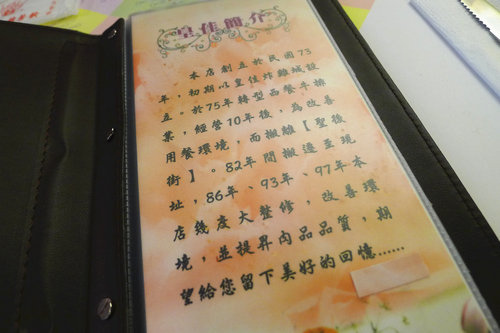 皇佳簡介
本店創立於民國73
年，初期以皇佳炸雞城設
立。於75年轉型西餐牛排
業，經營10年後，為改善
用餐環境，而搬離【聖後
街】。82年間搬遷至現
址，86年、93年、97年本
店幾度大整修，改善環
境，並提昇肉品品質，期
望給您留下美好的回憶……